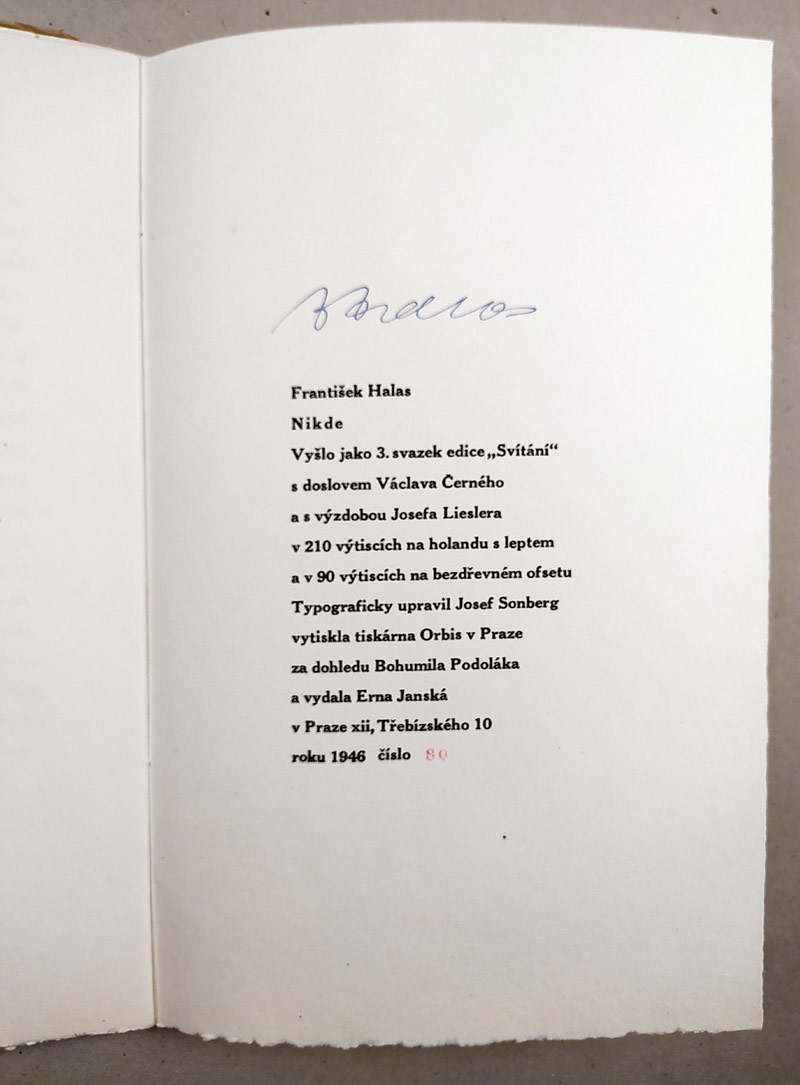 František Halas
Nikde
Vyšlo jako 3. svazek edice „Svítání“
s doslovem Václava Černého
a s výzdobou Josefa Lieslera
v 210 výtiscích na holandu s leptem
a v 90 výtiscích na bezdřevném ofsetu
Typograficky upravil Josef Sonberg
vytiskla tiskárna Orbis v Praze
za dohledu Bohumila Podoláka
a vydala Erna Janská
v Praze xii, Třebízského 10
roku 1946 číslo 80